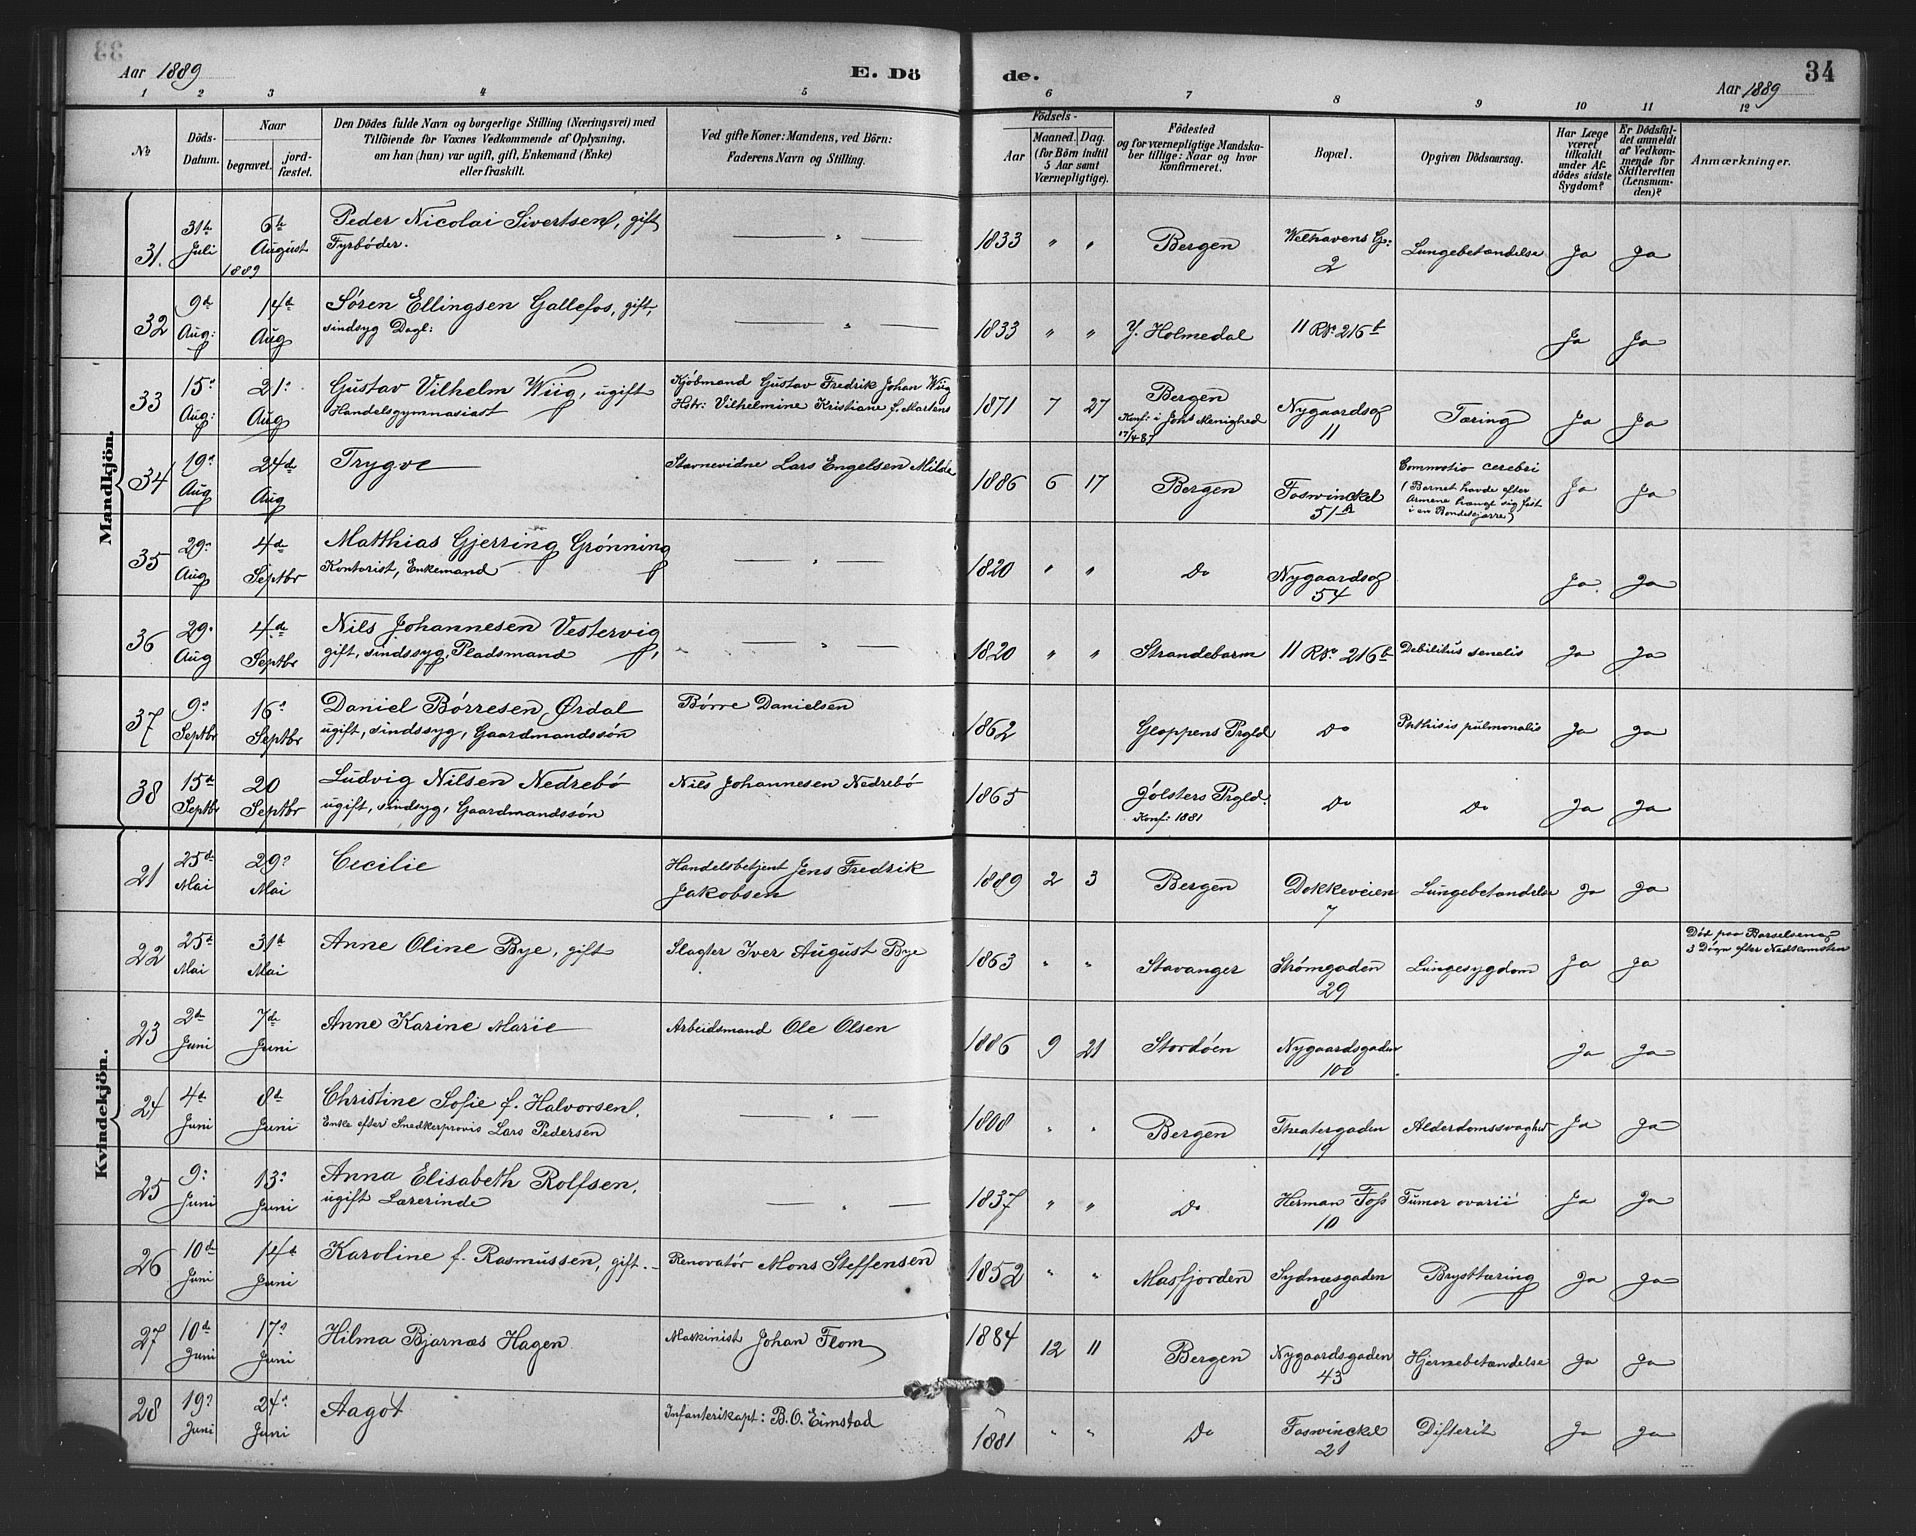 Aar 1889
E. Dö
de.
34
Aar 1889
1 2 3 4 5 6 7 8 9 10 11 12
№
Döds-
Datum.
Naar
begravet.
jord-
fæstet.
Den Dödes fulde Navn og borgerlige Stilling (Næringsvei) med
Tilföiende for Voxnes Vedkommende af Oplysning,
om han (hun) var ugift, gift, Enkemand (Enke)
eller fraskilt.
Ved gifte Koner: Mandens, ved Börn:
Faderens Navn og Stilling.
Födsels-
Aar
Maaned. Dag.
(for Börn indtil
5 Aar samt
Værnepligtige).
Födested
og for værnepligtige Mandska-
ber tillige: Naar og hvor
konfirmeret.
Bopæl.
Opgiven Dödsaarsag.
Har Læge
været
tilkaldt
under Af-
dödes sidste
Sygdom?
Er Dödsfal-
det anmeldt
af Vedkom-
mende for
Skifteretten
(Lensman-
den)?
Anmærkninger.
Mandkjön.
31. 31te Juli 6te August 1889 Peder Nicolai Sivertsen, gift
Fyrbøder. — " — 1833 " " Bergen Welhavens G: 2 Lungebetændelse Ja Ja
32 9d Aug: 14d Aug Søren Ellingsen Gallefos, gift,
sindsyg Dagl: — " — 1833 " " Y. Holmedal 11 R№ 216b Ja Ja
33 15: Aug: 21: Aug Gustav Vilhelm Wiig, ugift
Handelsgymnasiast
Kjøbmand Gustav Fredrik Johan Wiig
Hstr: Vilhelmine Kristiane f. Martens
1871 7 27 Bergen
Konf: i Johs Menighed
17/4 87
Nygaardsg 11 Tæring Ja Ja
34 19: Aug 24d Aug Trygve Stavnevidne Lars Engelsen Milde 1886 6 17 Bergen Foswinckel 51A
Commotio cerebri
(Barnet havde efter
Armene hængt sig fast
i en Bondekjærre)
Ja Ja
35 29: Aug 4de Septbr Matthias Gjerring Grønning
Kontorist, Enkemand — " — 1820 " " Do Nygaardsg 54 Ja. Ja
36 29: Aug 4de Septbr Nils Johannesen Vestervig
gift, sindssyg, Pladsmand — " — 1820 " " Strandebarm 11 R№ 216b Debilitus senelis Ja Ja
37 9: Septbr 16: Septbr Daniel Børresen Ørdal
ugift, sindssyg, Gaardmandssøn Børre Danielsen 1862 Gloppens Prgld Do Phthisis pulmonalis Ja Ja
38 15d Septbr 20 Septbr Ludvig Nilsen Nedrebø
ugift, sindsyg, Gaardmandssøn Nils Johannesen Nedrebø 1865 Jølsters Prgld.
Konf: 1881 Do Do Ja Ja
Kvindekjön.
21 25d Mai 29: Mai Cecilie Handelsbetjent Jens Fredrik
Jakobsen 1889 2 3 Bergen Dokkeveien 7 Lungebetændelse Ja Ja
22 25d Mai 31d Mai Anne Oline Bye, gift Slagter Iver August Bye 1863 " " Stavanger Strømgaden 29 Lungesygdom Ja Ja
Død paa Barselseng
3 Døgn efter Nedkomsten
23 2de Juni 7de Juni Anne Karine Marie Arbeidsmand Ole Olsen 1886 9 21 Stordøen Nygaardsgaden 100 Ja Ja
24 4d Juni 8d Juni Christine Sofie f. Halvorsen,
Enke efter Snedkerprovis Lars Pedersen — " — 1808 " " Bergen Theatergaden 19 Alderdomssvaghed Ja Ja
25 9: Juni 13: Juni Anna Elisabeth Rolfsen,
ugift Lærerinde — " — 1837 " " Do Herman Foss 10 Tumor ovarii Ja Ja
26 10d Juni 14d Juni Karoline f. Rasmussen, gift. Renovatør Mons Steffensen 1852 " " Masfjorden Sydnæsgaden 8 Brysttæring Ja Ja
27 10d Juni 17: Juni Hilma Bjarnæs Hagen Maskinist Johan Flom 1884 12 11 Bergen Nygaardsgaden 43 Hjernebetændelse Ja Ja
28 19: Juni 24: Juni Aagot Infanterikapt: B. O. Eimstad 1881 " " Do Foswinckel 21 Difterit Ja Ja